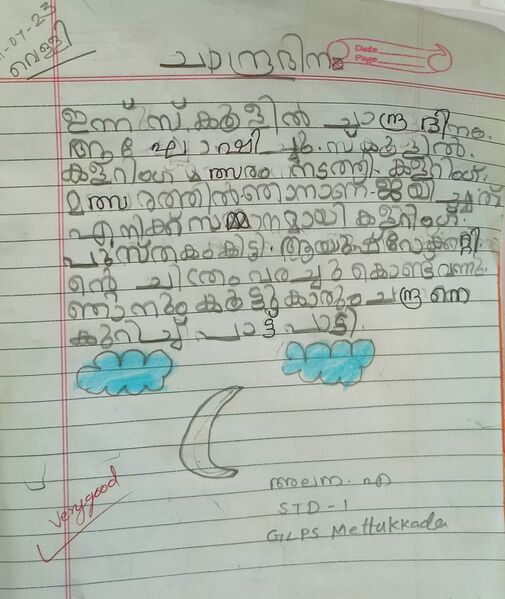 -07-23
വെള്ളി
ചാന്ദ്രദിനം
Date
Page
ഇന്ന് സ്കൂളിൽ ചാന്ദ്ര ദിനം.
ആഘോഷിച്ചു. സ്കൂളിൽ.
കളറിംഗ് മത്സരം നടത്തി. കളറിംഗ്.
മത്സരത്തിൽ ഞാനാണ് ജയിച്ചത്
എനിക്ക് സമ്മാനമായി കളറിംഗ്.
പുസ്തകം കിട്ടി.
ന്റെ ചിത്രം വരച്ചു കൊണ്ട് വന്നു.
ഞാനും കൂട്ടുകാരും ചന്ദ്രനെ
കുറിച്ച് പാട്ട് പാടി.
very good
STD-1
GLPS Mettukkada